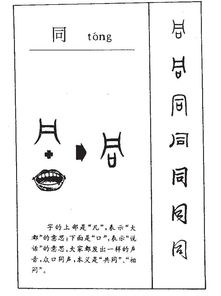 同 tóng
字的上部是“凡”，表示“大
都”的意思；下面是“口”，表示“说
话”的意思。大家都发出一样的声
音，众口同声，本义是“共同”、“相
同”。
同
同
同
同
同
同
同